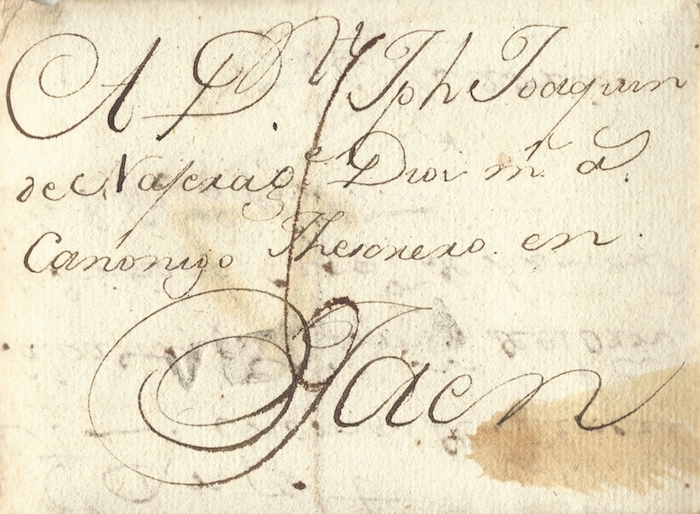 A D.n Jph Joaquin
de Naſerag.e Dios m.s a.s
Canonigo Thesorero en
Jaen